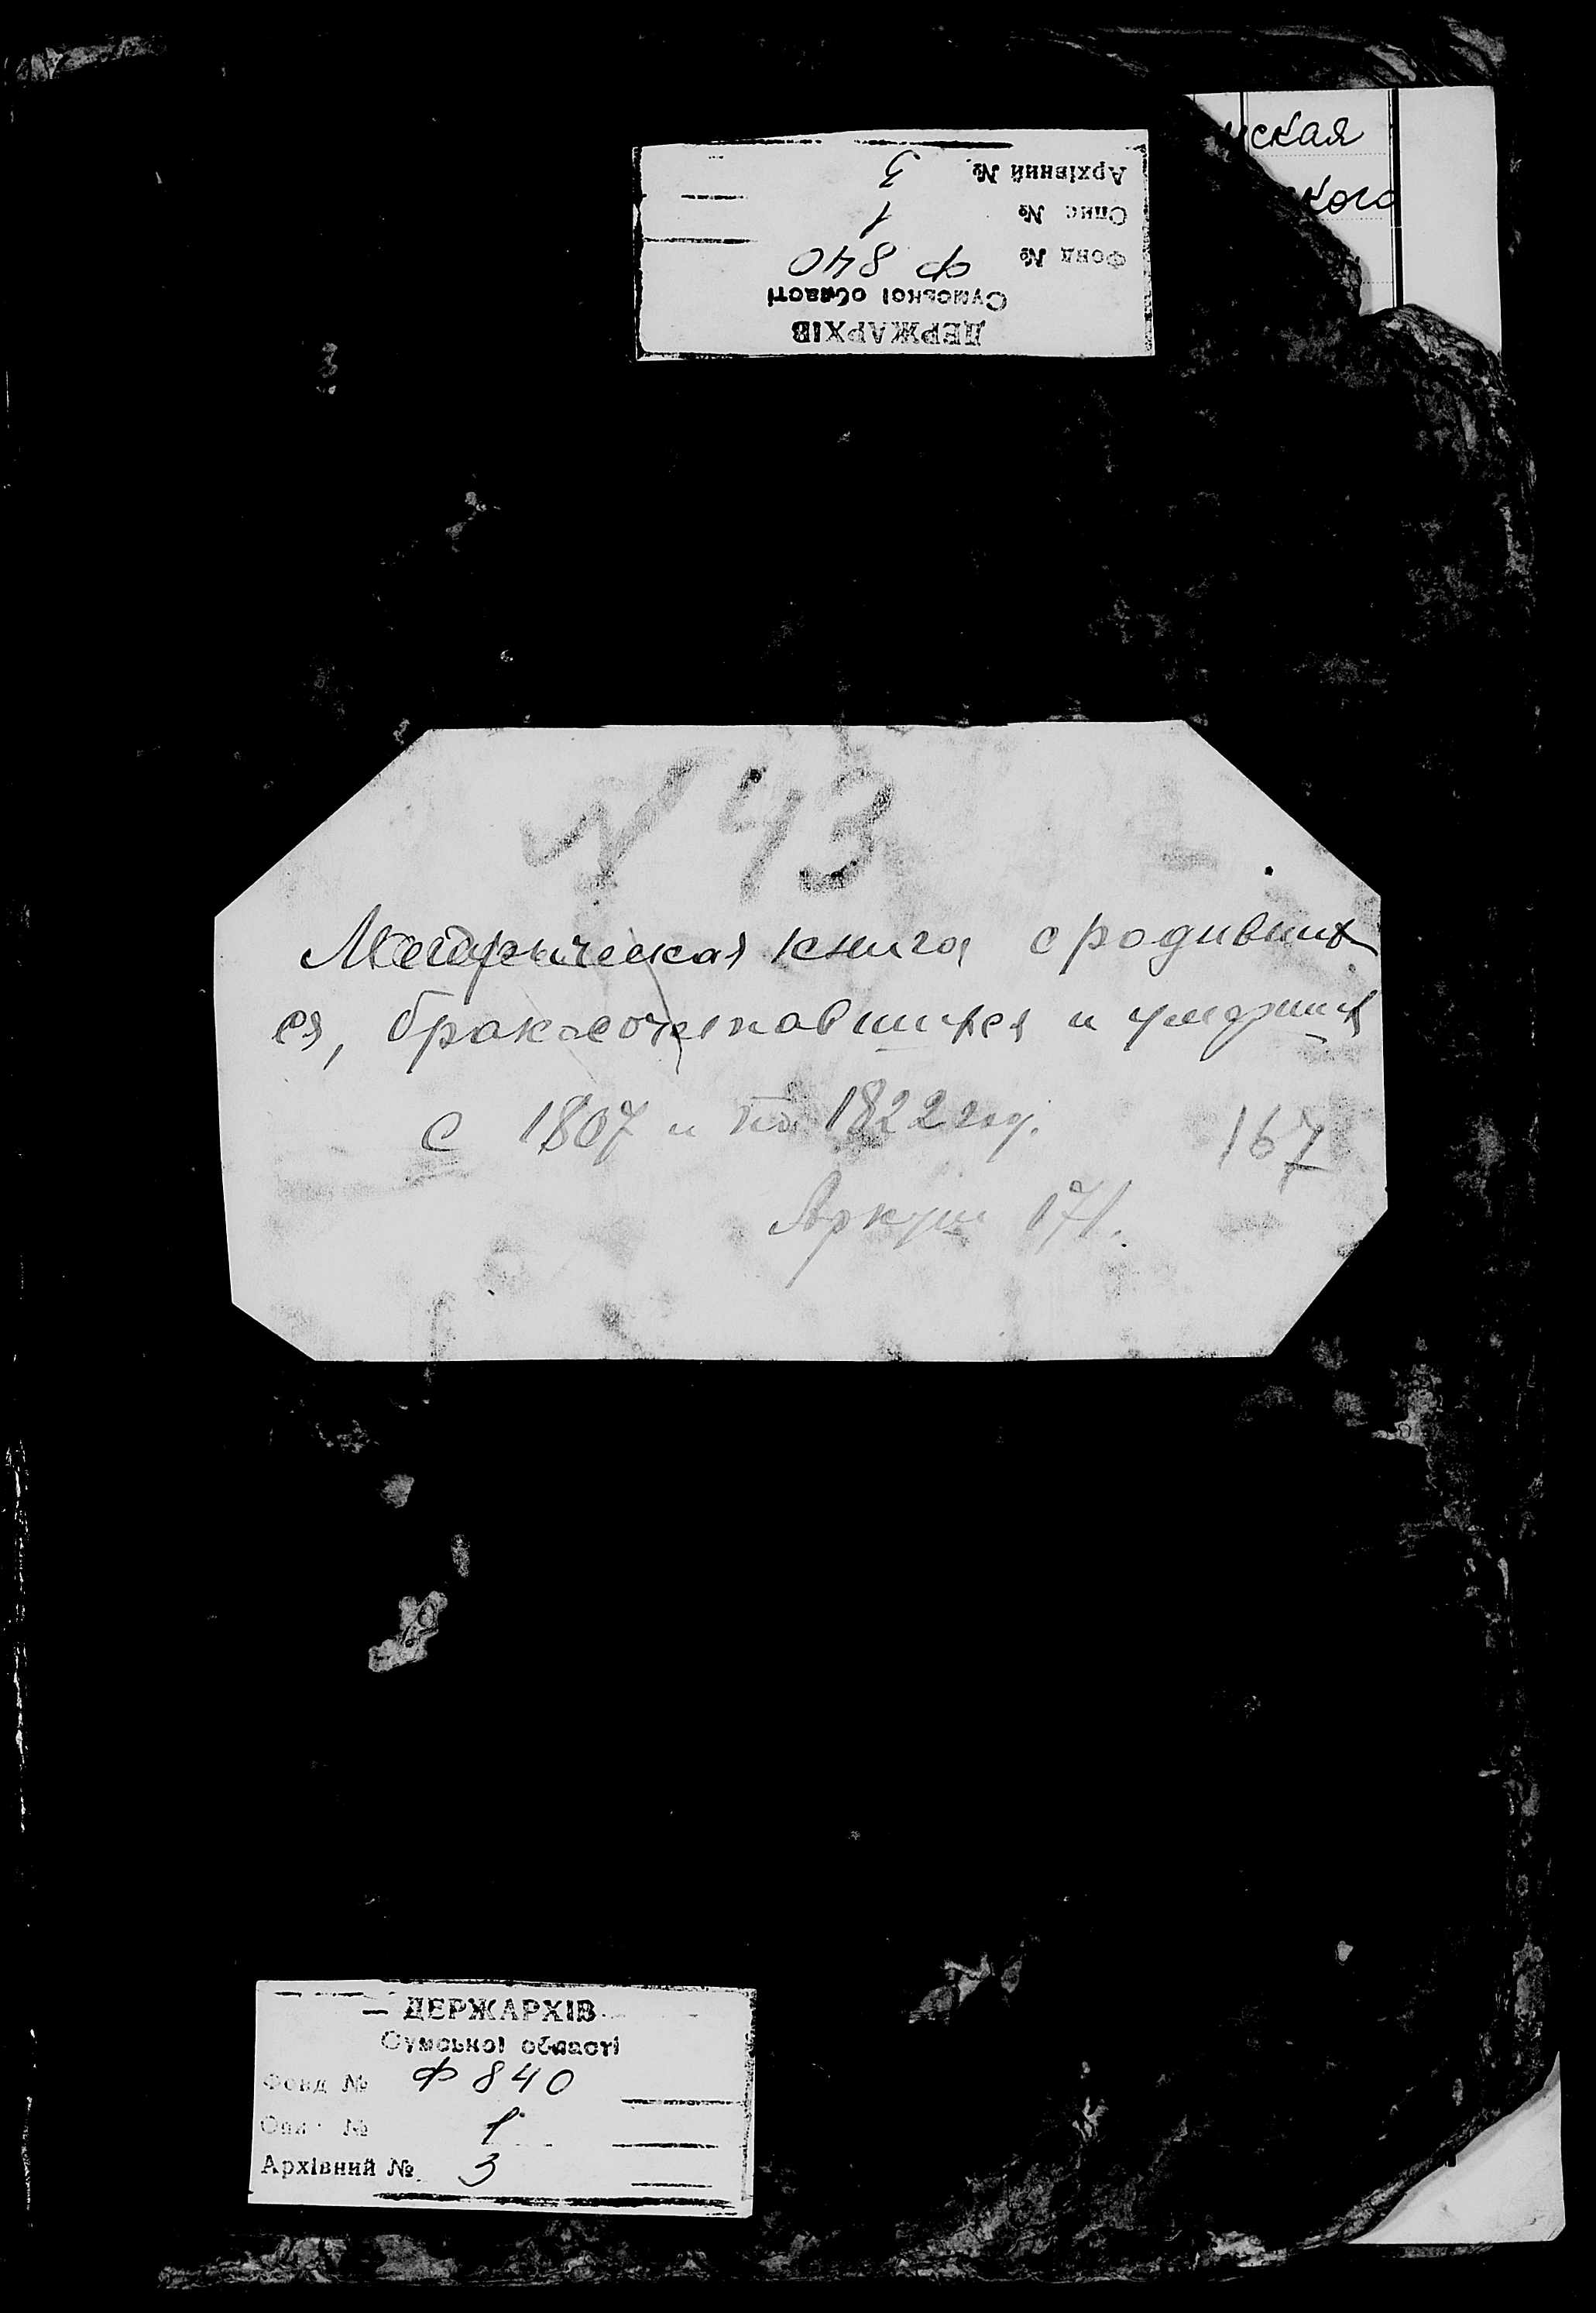 ская
кого
ДЕРЖАРХІВ
Сумської області
Фонд № Ф 840
Опис № 1
Архівний № 3
N 43
Метрическая книга о родивших
ся, бракосочетавшихся и умерших
с 1807 и по 1822 год.
167
Аркуш 171.
ДЕРЖАРХІВ
Сумської області
Фонд № Ф 840
Опис № 1
Архівний № 3